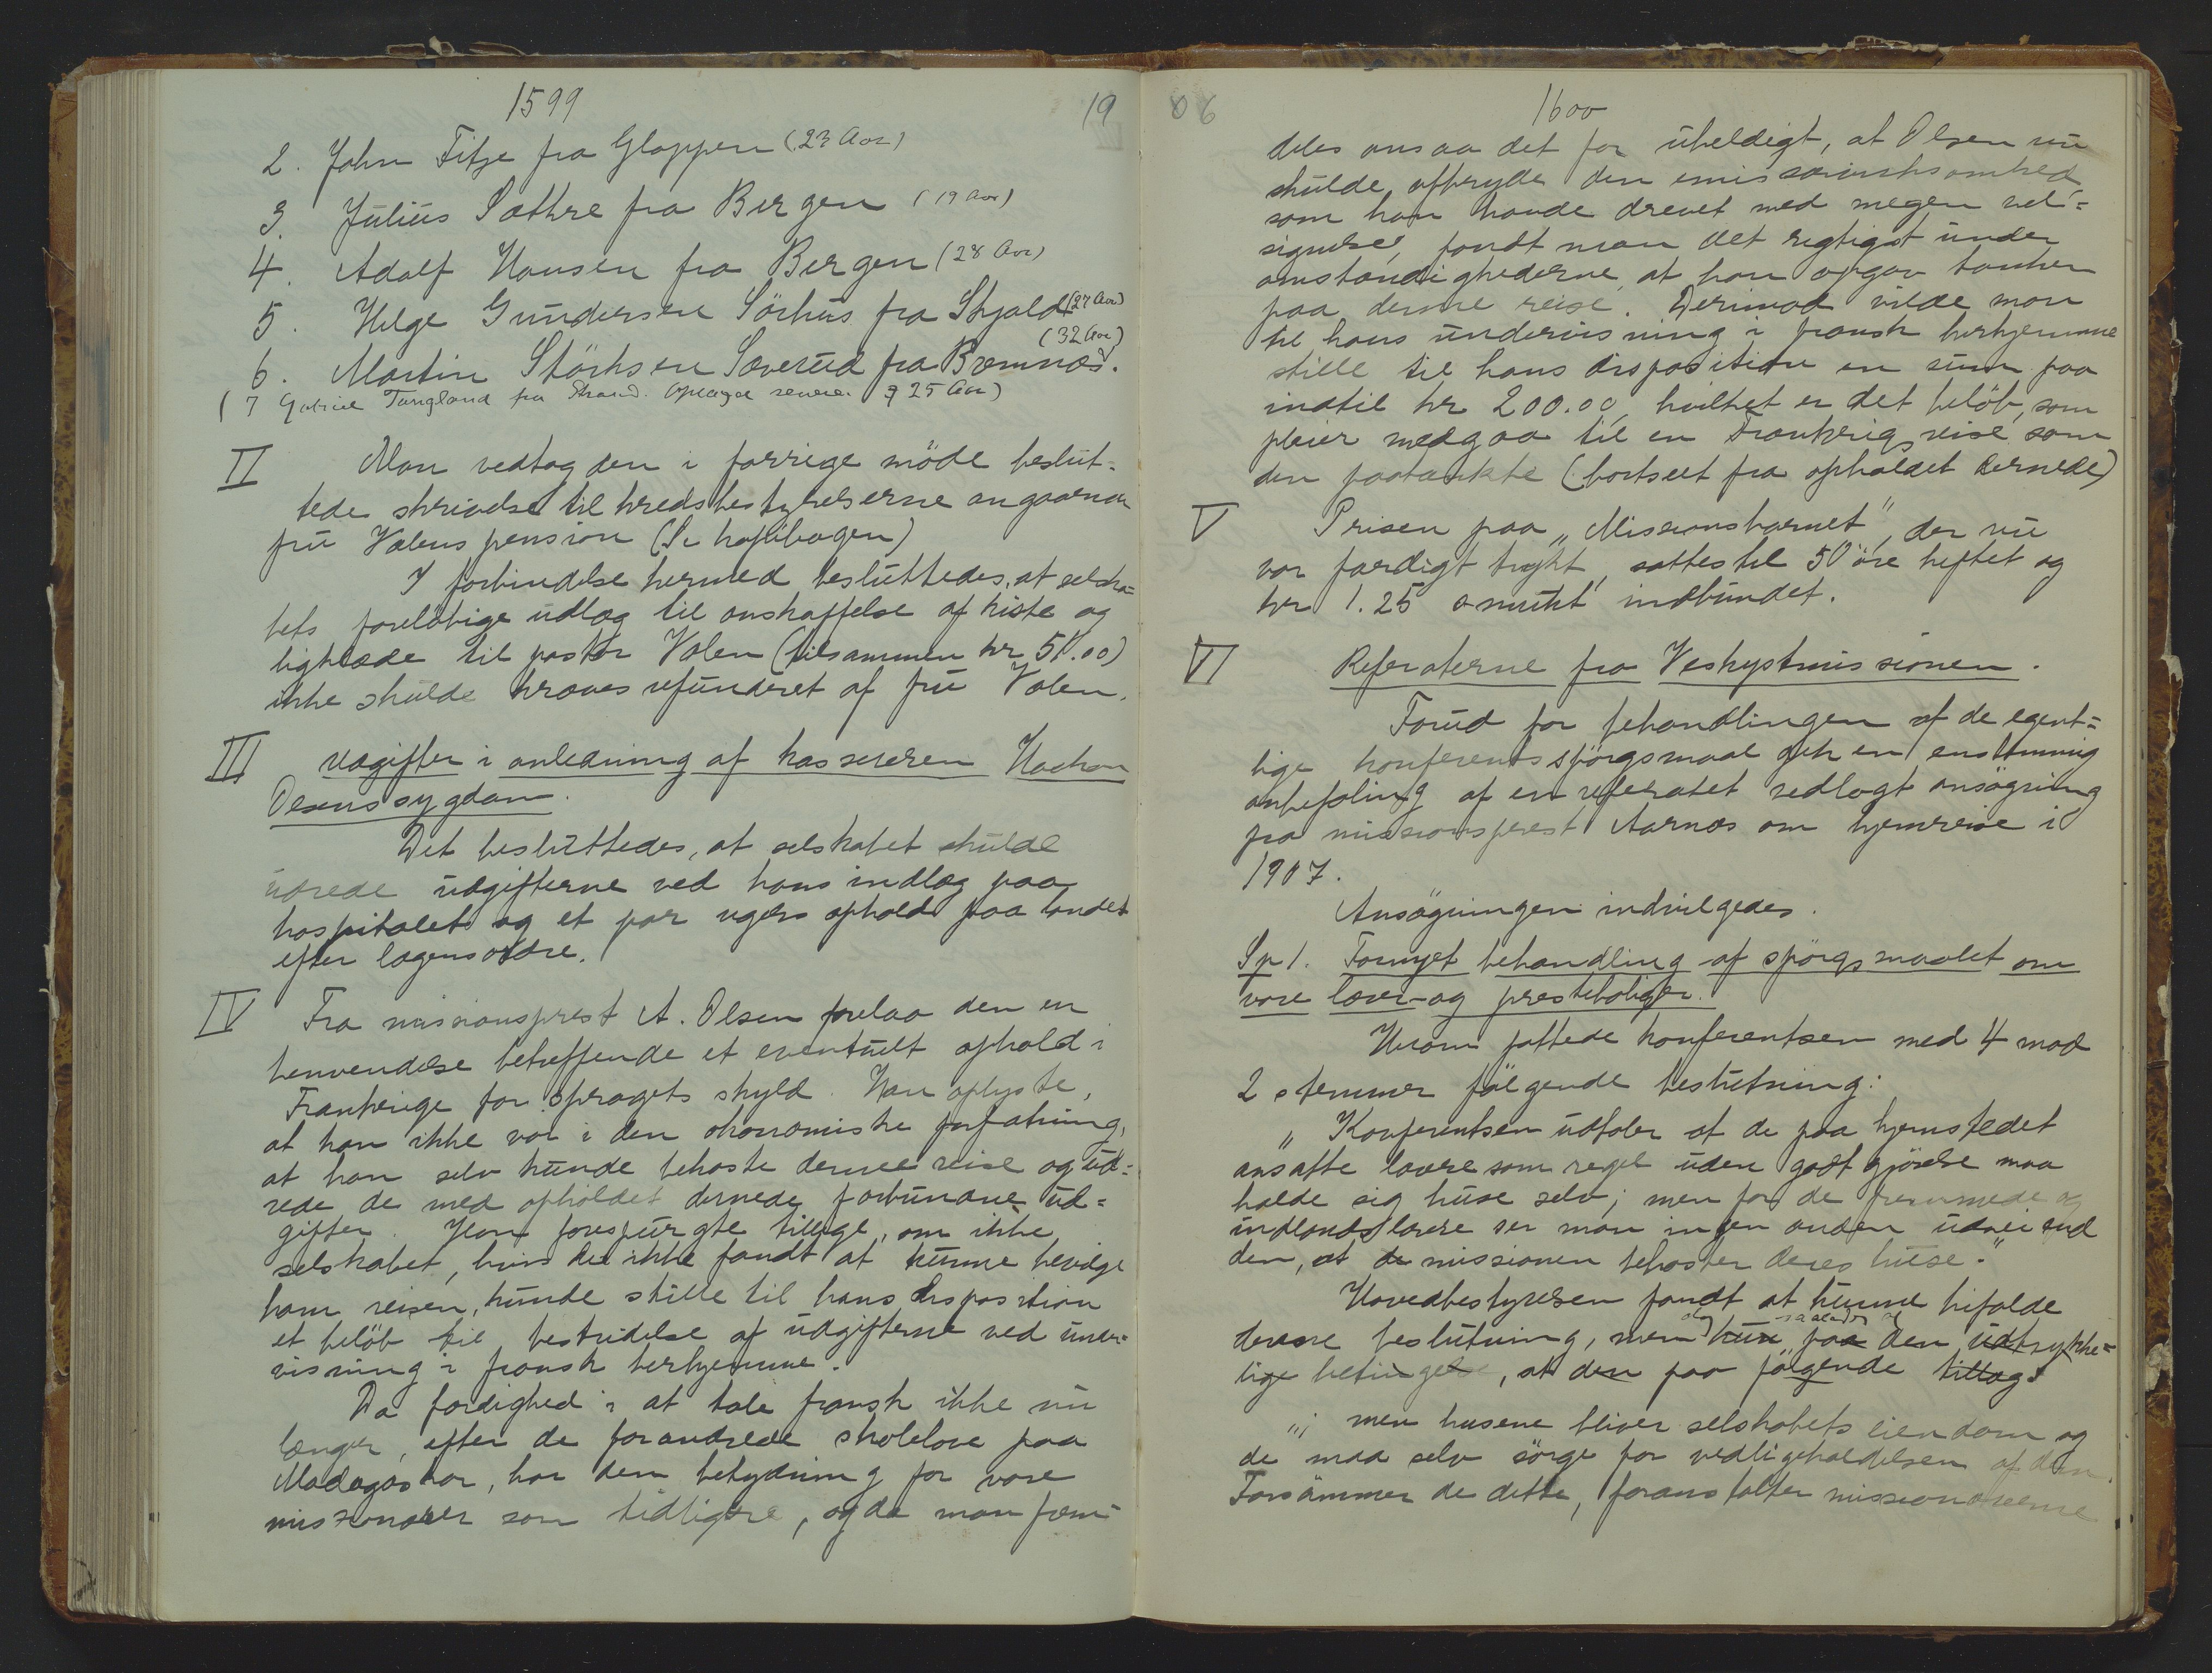 1599
19
2. John Fitje fra Gloppen (23 Aar)
3. Julius Sæthre fra Bergen (19 Aar)
4. Adolf Hansen fra Bergen (28 Aar)
5. Helge Gundersen Sörhus fra Skjold (27 Aar)
(32 Aar)
6. Martin Störksen Sæverud fra Bremnæs.
(7 Gabriel Tungland fra Strand. Optaget senere. 25 Aar)
II Man vedtog den i forrige möde beslut-
tede skrivelse til kredsbestyrelserne angaaende
fru Valens pension (Se kopibogen)
I forbindelse hermed besluttedes, at selska-
bets forelöbige udlæg til anskaffelse af kiste og
ligklæde til pastor Valen (tilsammen kr 51.00)
ikke skulde kræves refunderet af fru Valen.
III Udgifter i anledning af kassereren Haakon
Olsens sygdom.
Det besluttedes, at selskabet skulde
udrede udgifterne ved hans indlæg paa
hospitalet og et par ugers ophold paa landet
efter lægens ordre.
IV Fra missionsprest A. Olsen forelaa den en
henvendelse betreffende et eventuelt ophold i
Frankrige for sprogets skyld. Han oplyste,
at han ikke var i den ökonomiske forfatning,
at han selv kunde bekoste denne reise og ud-
rede de med opholdet dernede forbundne ud-
gifter. Han forespurgte tillige, om ikke
selskabet, hvis det ikke fandt at kunne bevilge
ham reisen, kunde stille til hans disposition
et belöb til bestridelse af udgifterne ved under-
visning i fransk herhjemme.
Da færdighed i at tale fransk ikke nu
længer, efter de forandrede skolelove paa
Madagaskar, har den betydning for vore
missionærer som tidligere, og da man frem-
06
1600
deles ansaa det for uheldigt, at Olsen nu
skulde afbryde den emissærvirksomhed,
som han havde drevet med megen vel-
signelse, fandt man det rigtigst under
omstændighederne, at han opgav tanken
paa denne reise. Derimod vilde man
til hans undervisning i fransk herhjemme
stille til hans disposition en sum paa
indtil kr 200.00, hvilket er det belöb, som
pleier medgaa til en Frankrigsreise som
den paatænkte (bortseet fra opholdet dernede)
V Prisen paa "Missionsbarnet", der nu
var færdigt trykt, sattes til 50 öre heftet og
kr 1.25 smukt indbundet.
VI Referaterne fra Vestkystmissionen.
Forud for behandlingen af de egent-
lige konferentsspörgsmaal gik en enstemmig
anbefaling af en referatet vedlagt ansögning
fra missionsprest Aarnæs om hjemreise i
1907.
Ansögningen indvilgedes.
Sp 1. Fornyet behandling af spörgsmaalet om
vore lærer- og presteboliger.
Herom fattede konferentsen med 4 mod
2 stemmer fölgende beslutning:
"Konferentsen udtaler at de paa hjemstedet
ansatte lærere som regel uden godtgjörelse maa
holde sig huse selv; men for de fremmede og
indlandslærere ser man ingen anden udvei end
den, at de missionen bekoster deres huse."
Hovedbestyrelsen fandt at kunne bifalde
dog saaledes
denne beslutning, men kun paa den udtrykke-
lige betingelse, at den paa fölgende tillæg:
"; men husene bliver selskabets eiendom og
de maa selv sörge for vedligeholdelsen af dem.
Forsömmer de dette, foranstalter missionærerne